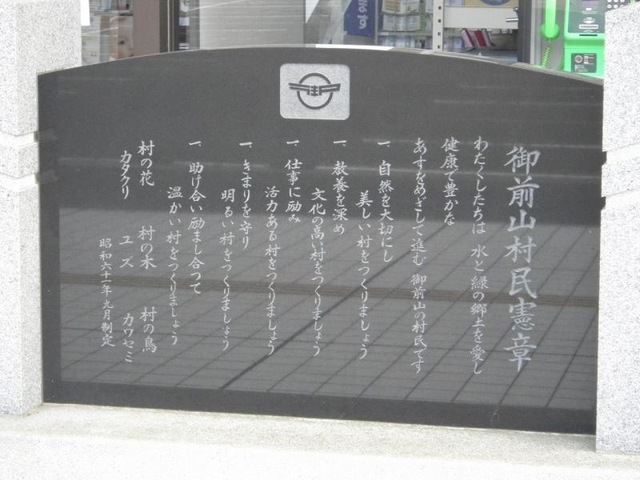 御前山村民憲章
わたくしたちは 水と緑の郷土を愛し
健康で豊かな
あすをめざして進む 御前山の村民です
一、自然を大切にし
美しい村をつくりましょう
一、教養を深め
文化の高い村をつくりましょう
一、仕事に励み
活力ある村をつくりましょう
一、きまりを守り
明るい村をつくりましょう
一、助け合い励まし合って
温かい村をつくりましょう
村の花 村の木 村の鳥
カタクリ ユズ カワセミ
昭和六十一年九月制定